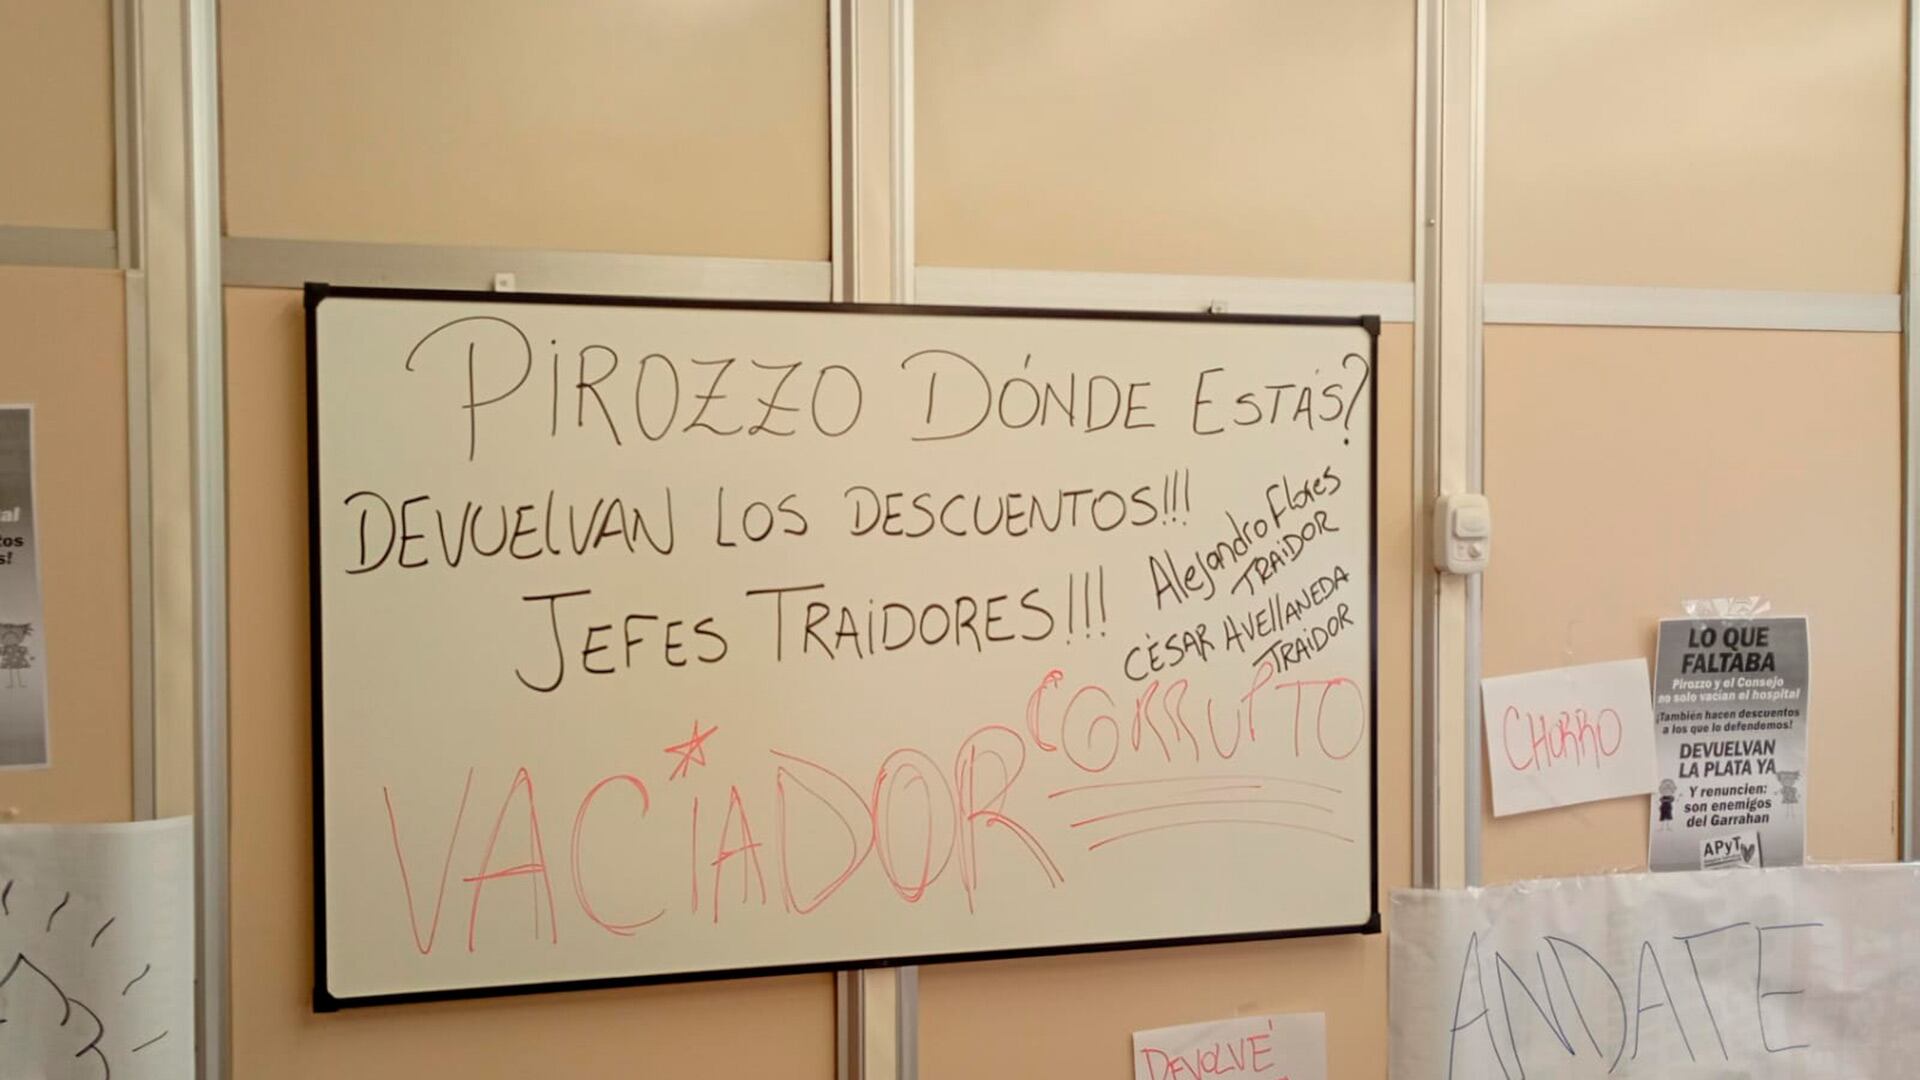 PIROZZO DÓNDE ESTÁS?
DEVUELVAN LOS DESCUENTOS!!!
JEFES TRAIDORES!!!
Alejandro Flores
TRAIDOR
CÉSAR AVELLANEDA
TRAIDOR
CORRUPTO
VACIADOR
CHORRO
LO QUE
FALTABA
Pirozzo y el Consejo
no solo vacían el hospital
¡También hacen descuentos
a los que lo defendemos!
DEVUELVAN
LA PLATA YA
Y renuncien:
son enemigos
del Garrahan
APyT
ANDATE
DEVOLVÉ
al
tos
s!